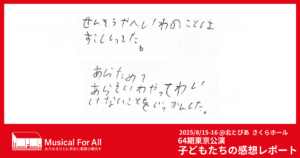 せんそうやへいわのことは
すこししってた。
あらためて
あらそいわやってわい
けないことをじっかんした。
Musical For All
2025/8/15-16 @北とぴあ さくらホール
64期東京公演
子どもたちの感想レポート